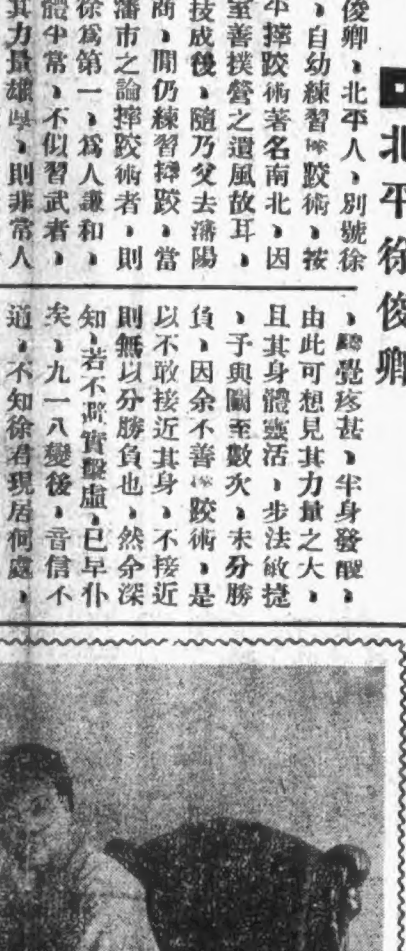 北平徐俊卿
俊卿、北平人、別號徐
、自幼練習摔跤術、按
平摔跤術著名南北、因
室善撲營之遺風故耳、
技成後、隨乃父去瀋陽
商、閒仍練習摔跤、當
瀋市之論摔跤術者、則
徐爲第一、爲人謙和、
體平常、不似習武者、
其力量雄、則非常人
、覺疼甚、半身發、
由此可想見其力量之大、
且其身體靈活、步法敏捷
、予與鬭至數次、未分勝
負、因余不善摔跤術、是
以不敢接近其身、不接近
則無以分勝負也、然余深
知、若不避實擊虛、已早仆
矣、九一八變後、音信不
通、不知徐君現居何處、